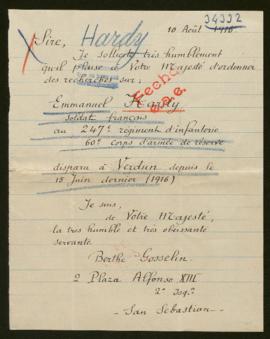 34332
10 Août 1916.
Hardy
Sire,
Je sollicite très humblement
qu'il plaise à Votre Majesté d'ordonner
des recherches sur:
Fecha
Emmanuel Hardy
soldat français
au 247e régiment d'infanterie
60e corps d'armée de réserve
disparu à Verdun depuis le
15 Juin dernier (1916)
Je suis,
de Votre Majesté,
la très humble et très obéissante
servante
Berthe Gosselin
2 Plaza Alfonso XIII
2º Izqª
San Sebastian